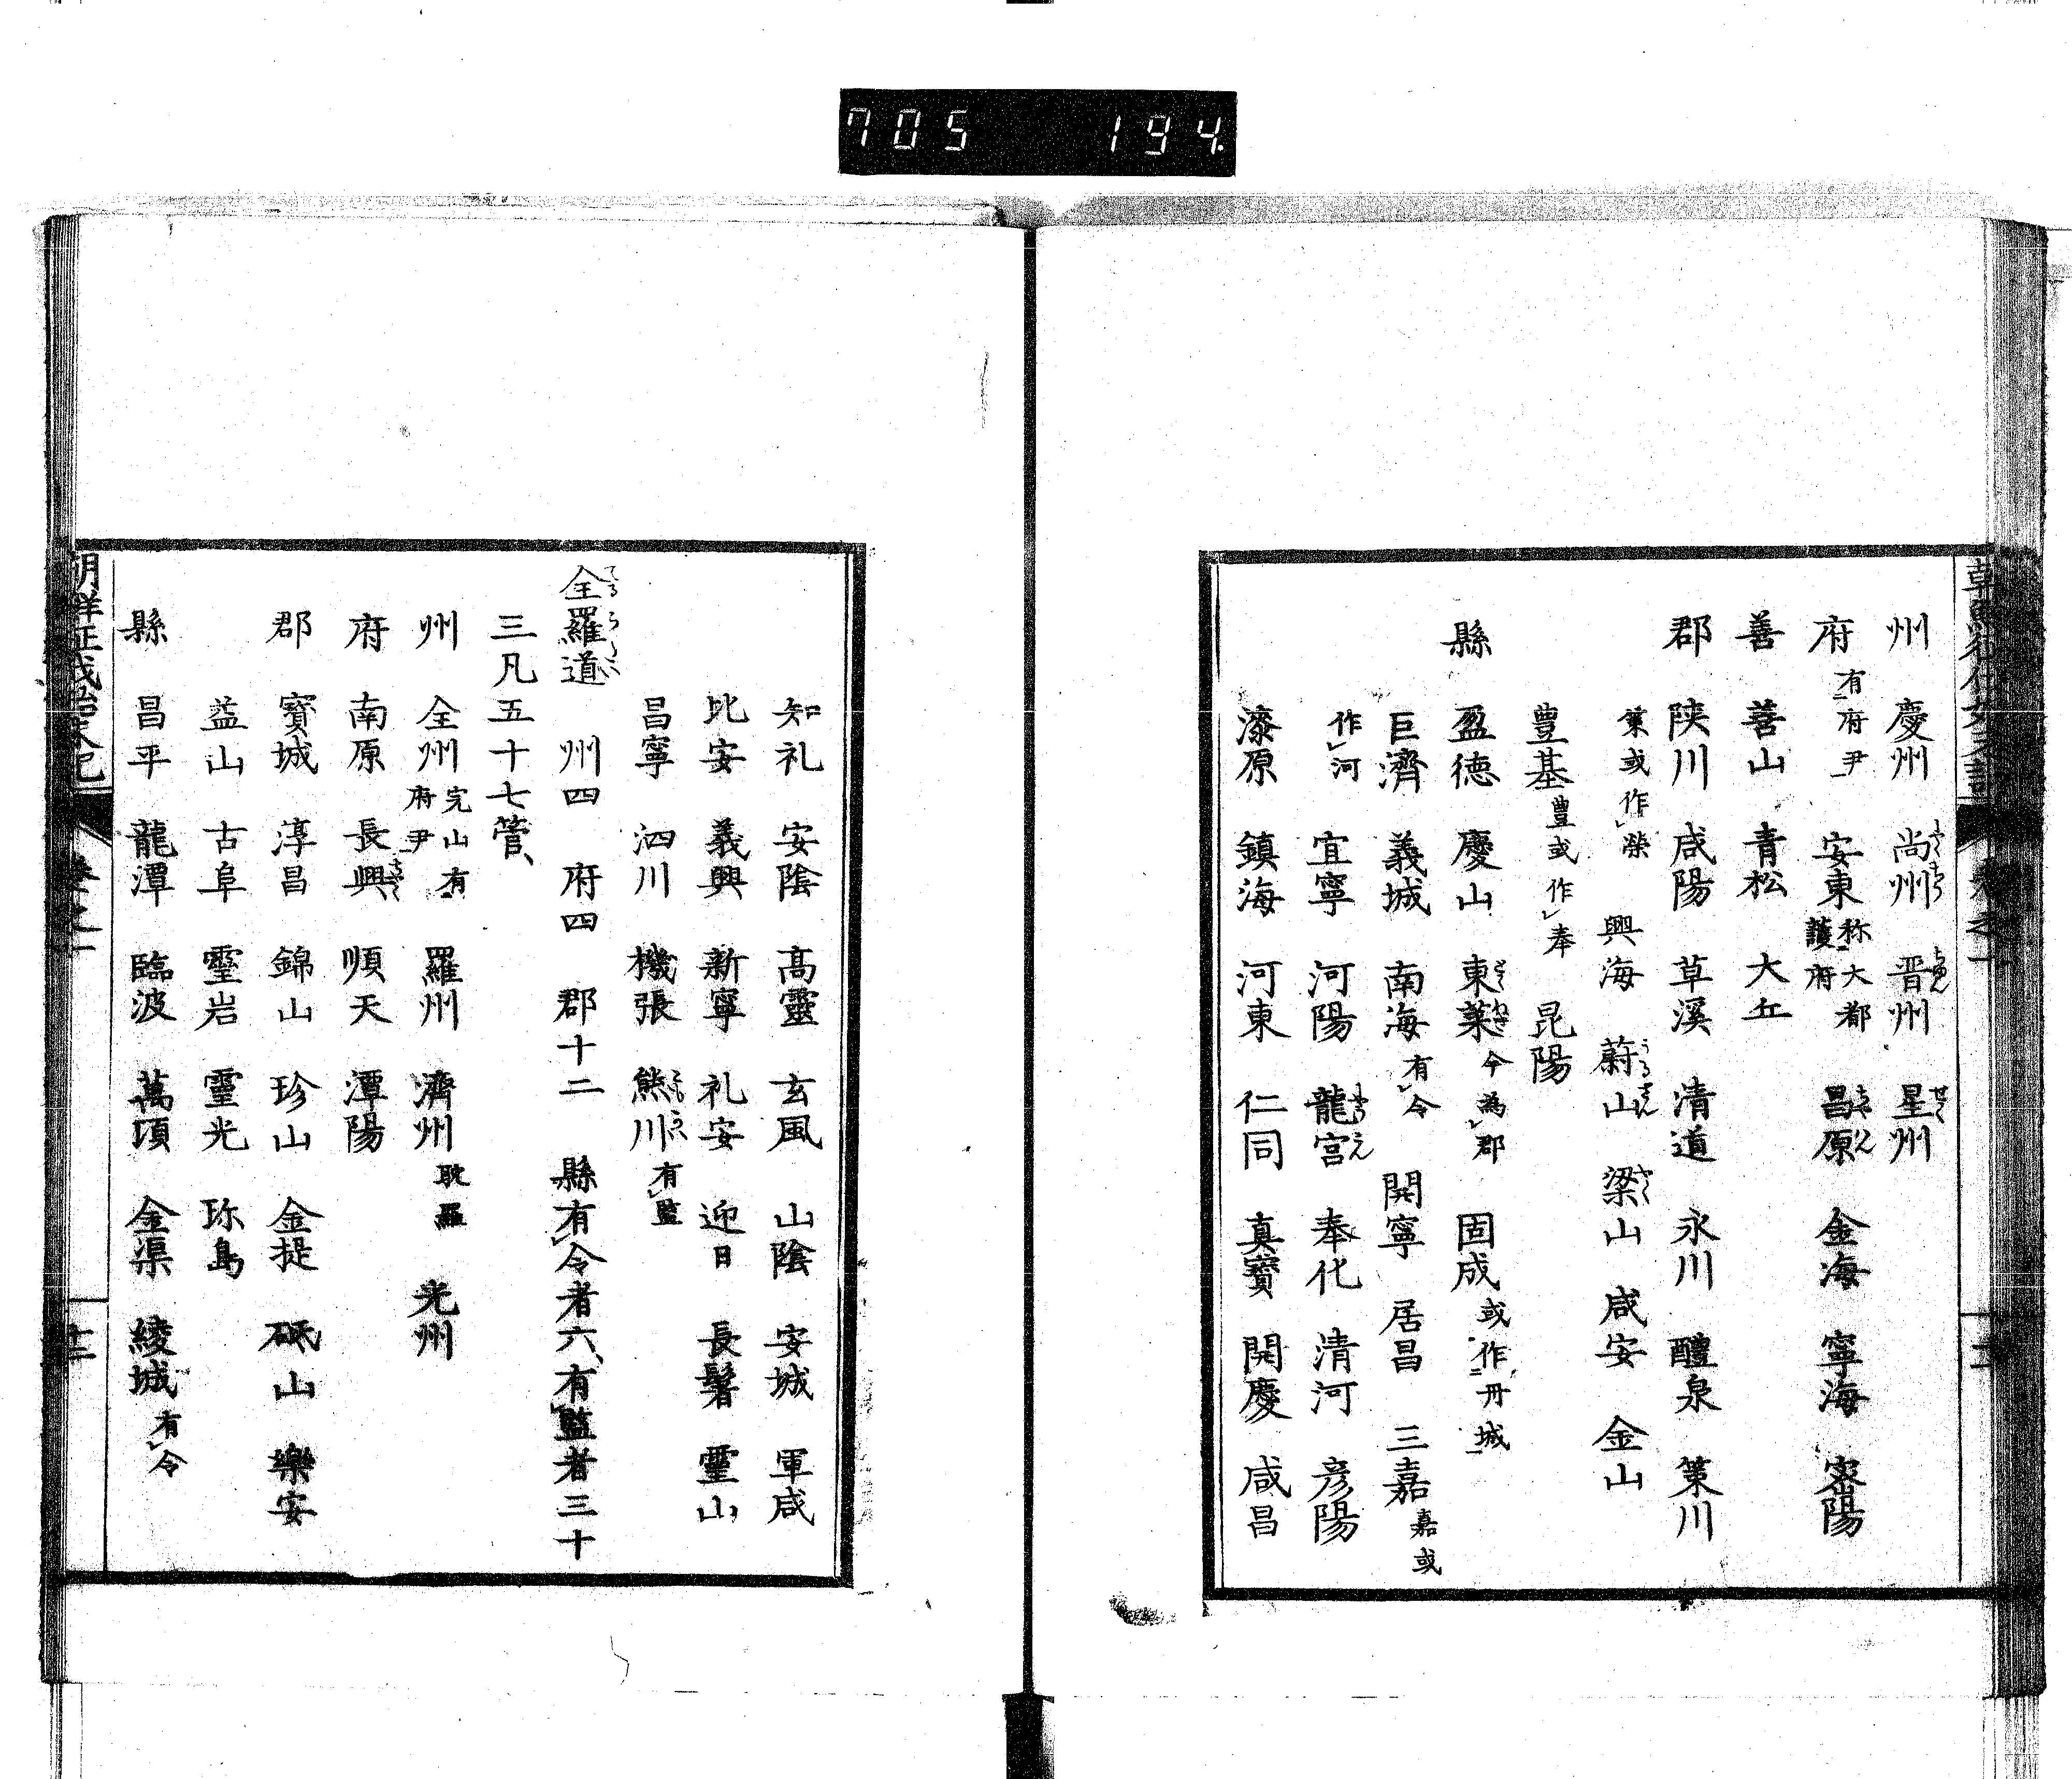 705 194
州 慶州 尚州 晋州 星州
府 有府尹 安東 称大都護府 昌原 金海 寧海 密陽
善 善山 青松 大丘
郡 陝川 咸陽 草溪 清道 永川 醴泉 策川
策或作榮 興海 蔚山 梁山 咸安 金山
豊基 豊或作奉 昆陽
縣 盈徳 慶山 東莱 今為郡 固成 或作丹城
巨濟 義城 南海 有令 開寧 居昌 三嘉 嘉或
作河 宜寧 河陽 龍宮 奉化 清河 彦陽
漆原 鎮海 河東 仁同 真寶 開慶 咸昌
知礼 安陰 高靈 玄風 山陰 安城 軍咸
比安 義興 新寧 礼安 迎日 長鬐 霊山
昌寧 泗川 機張 熊川 有監
全羅道 州四 府四 郡十二 縣有令者六、有監者三十
三凡五十七管、
州 全州 完山有府尹 羅州 濟州 耽羅 光州
府 南原 長興 順天 潭陽
郡 寶城 淳昌 錦山 珍山 金提 砥山 樂安
益山 古阜 霊岩 霊光 珎島
縣 昌平 龍潭 臨波 萬頃 金渠 綾城 有令